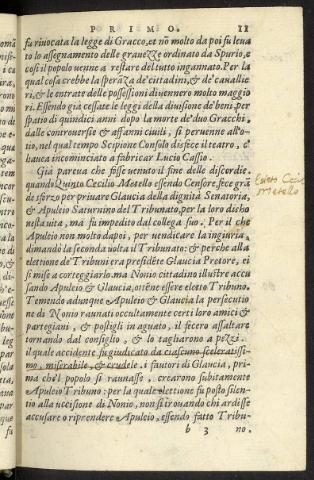 PRIMO. 11
fu riuocata la legge di Gracco, et nõ molto da poi fu leua
to lo assegnamento delle grauezze ordinato da Spurio, e
cosi il popolo uenne a restare del tutto ingannato. Per la
qual cosa crebbe la sperãza de' cittadini, & de' caualie
ri, & le entrate delle possessioni diuennero molto maggio
ri. Essendo già cessate le leggi della diuisione de' beni, per
spatio di quindici anni dopo la morte de' duo Gracchi,
dalle controuersie & affanni ciuili, si peruenne all'o-
tio, nel qual tempo Scipione Consolo disfece il teatro, c'
hauea incominciato a fabricar Lucio Cassio.
Già pareua che fusse uenuto il fine delle discordie.
quando Quinto Cecilio Metello essendo Censore, fece grã
de sforzo per priuare Glaucia della dignità Senatoria,
& Apuleio Saturnino del Tribunato, per la loro disho
nesta uita, ma fu impedito dal collega suo. Per il che
Apuleio non molto dapoi, per uendicare la ingiuria,
dimandò la seconda uolta il Tribunato: & perche alla
elettione de' Tribuni era presidẽte Glaucia Pretore, ei
si mise a corteggiarlo. ma Nonio cittadino illustre accu
sando Apuleio & Glaucia, ottẽne essere eletto Tribuno.
Temendo adunque Apuleio & Glaucia la persecutio
ne di Nonio raunati occultamente certi loro amici &
partegiani, & postigli in aguato, il fecero assaltare
tornando dal consiglio, & lo tagliarono a pezzi.
il quale accidente fu giudicato da ciascuno sceleratissi-
mo, miserabile, & crudele. i fautori di Glaucia, pri-
ma che'l popolo si raunasse, crearono subitamente
Apuleio Tribuno: per la quale elettione fu posto silen-
tio alla uccisione di Nonio, non si trouando chi ardisse
accusare o riprendere Apuleio, essendo fatto Tribu-
b 3 no.
Metello